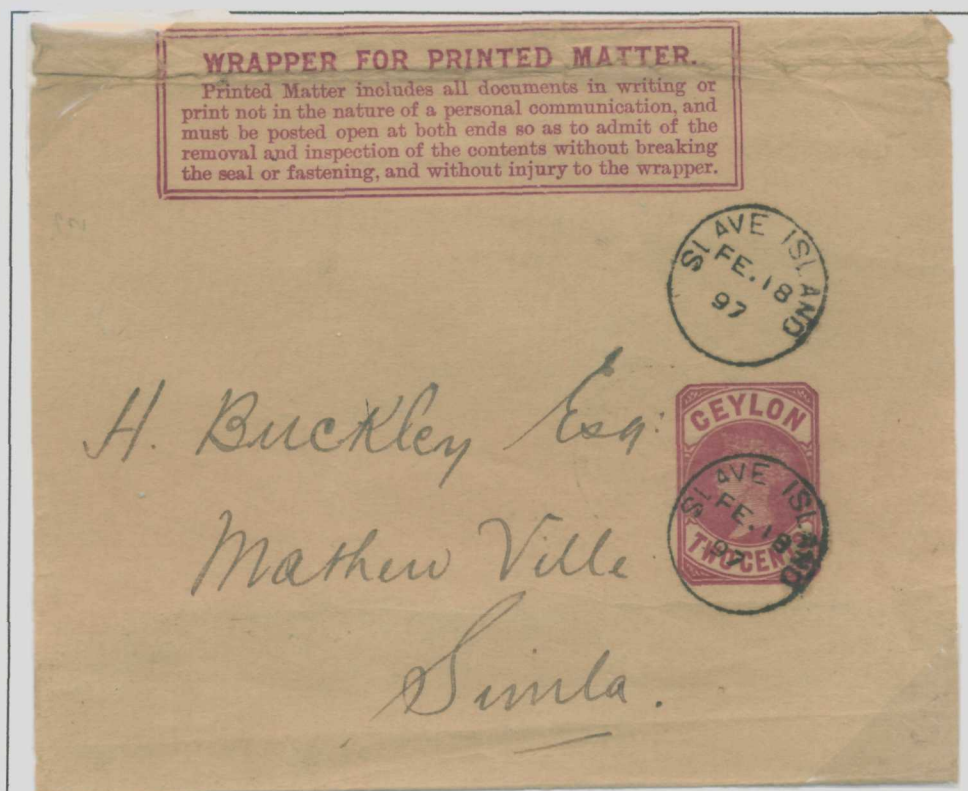 WRAPPER FOR PRINTED MATTER.
Printed Matter includes all documents in writing or
print not in the nature of a personal communication, and
must be posted open at both ends so as to admit of the
removal and inspection of the contents without breaking
the seal or fastening, and without injury to the wrapper.
SLAVE ISLAND
FE.18
97
H. Buckley Esq:
CEYLON
SLAVE ISLAND
FE.18
97
TWO CENTS
Mathew Ville
Simla.